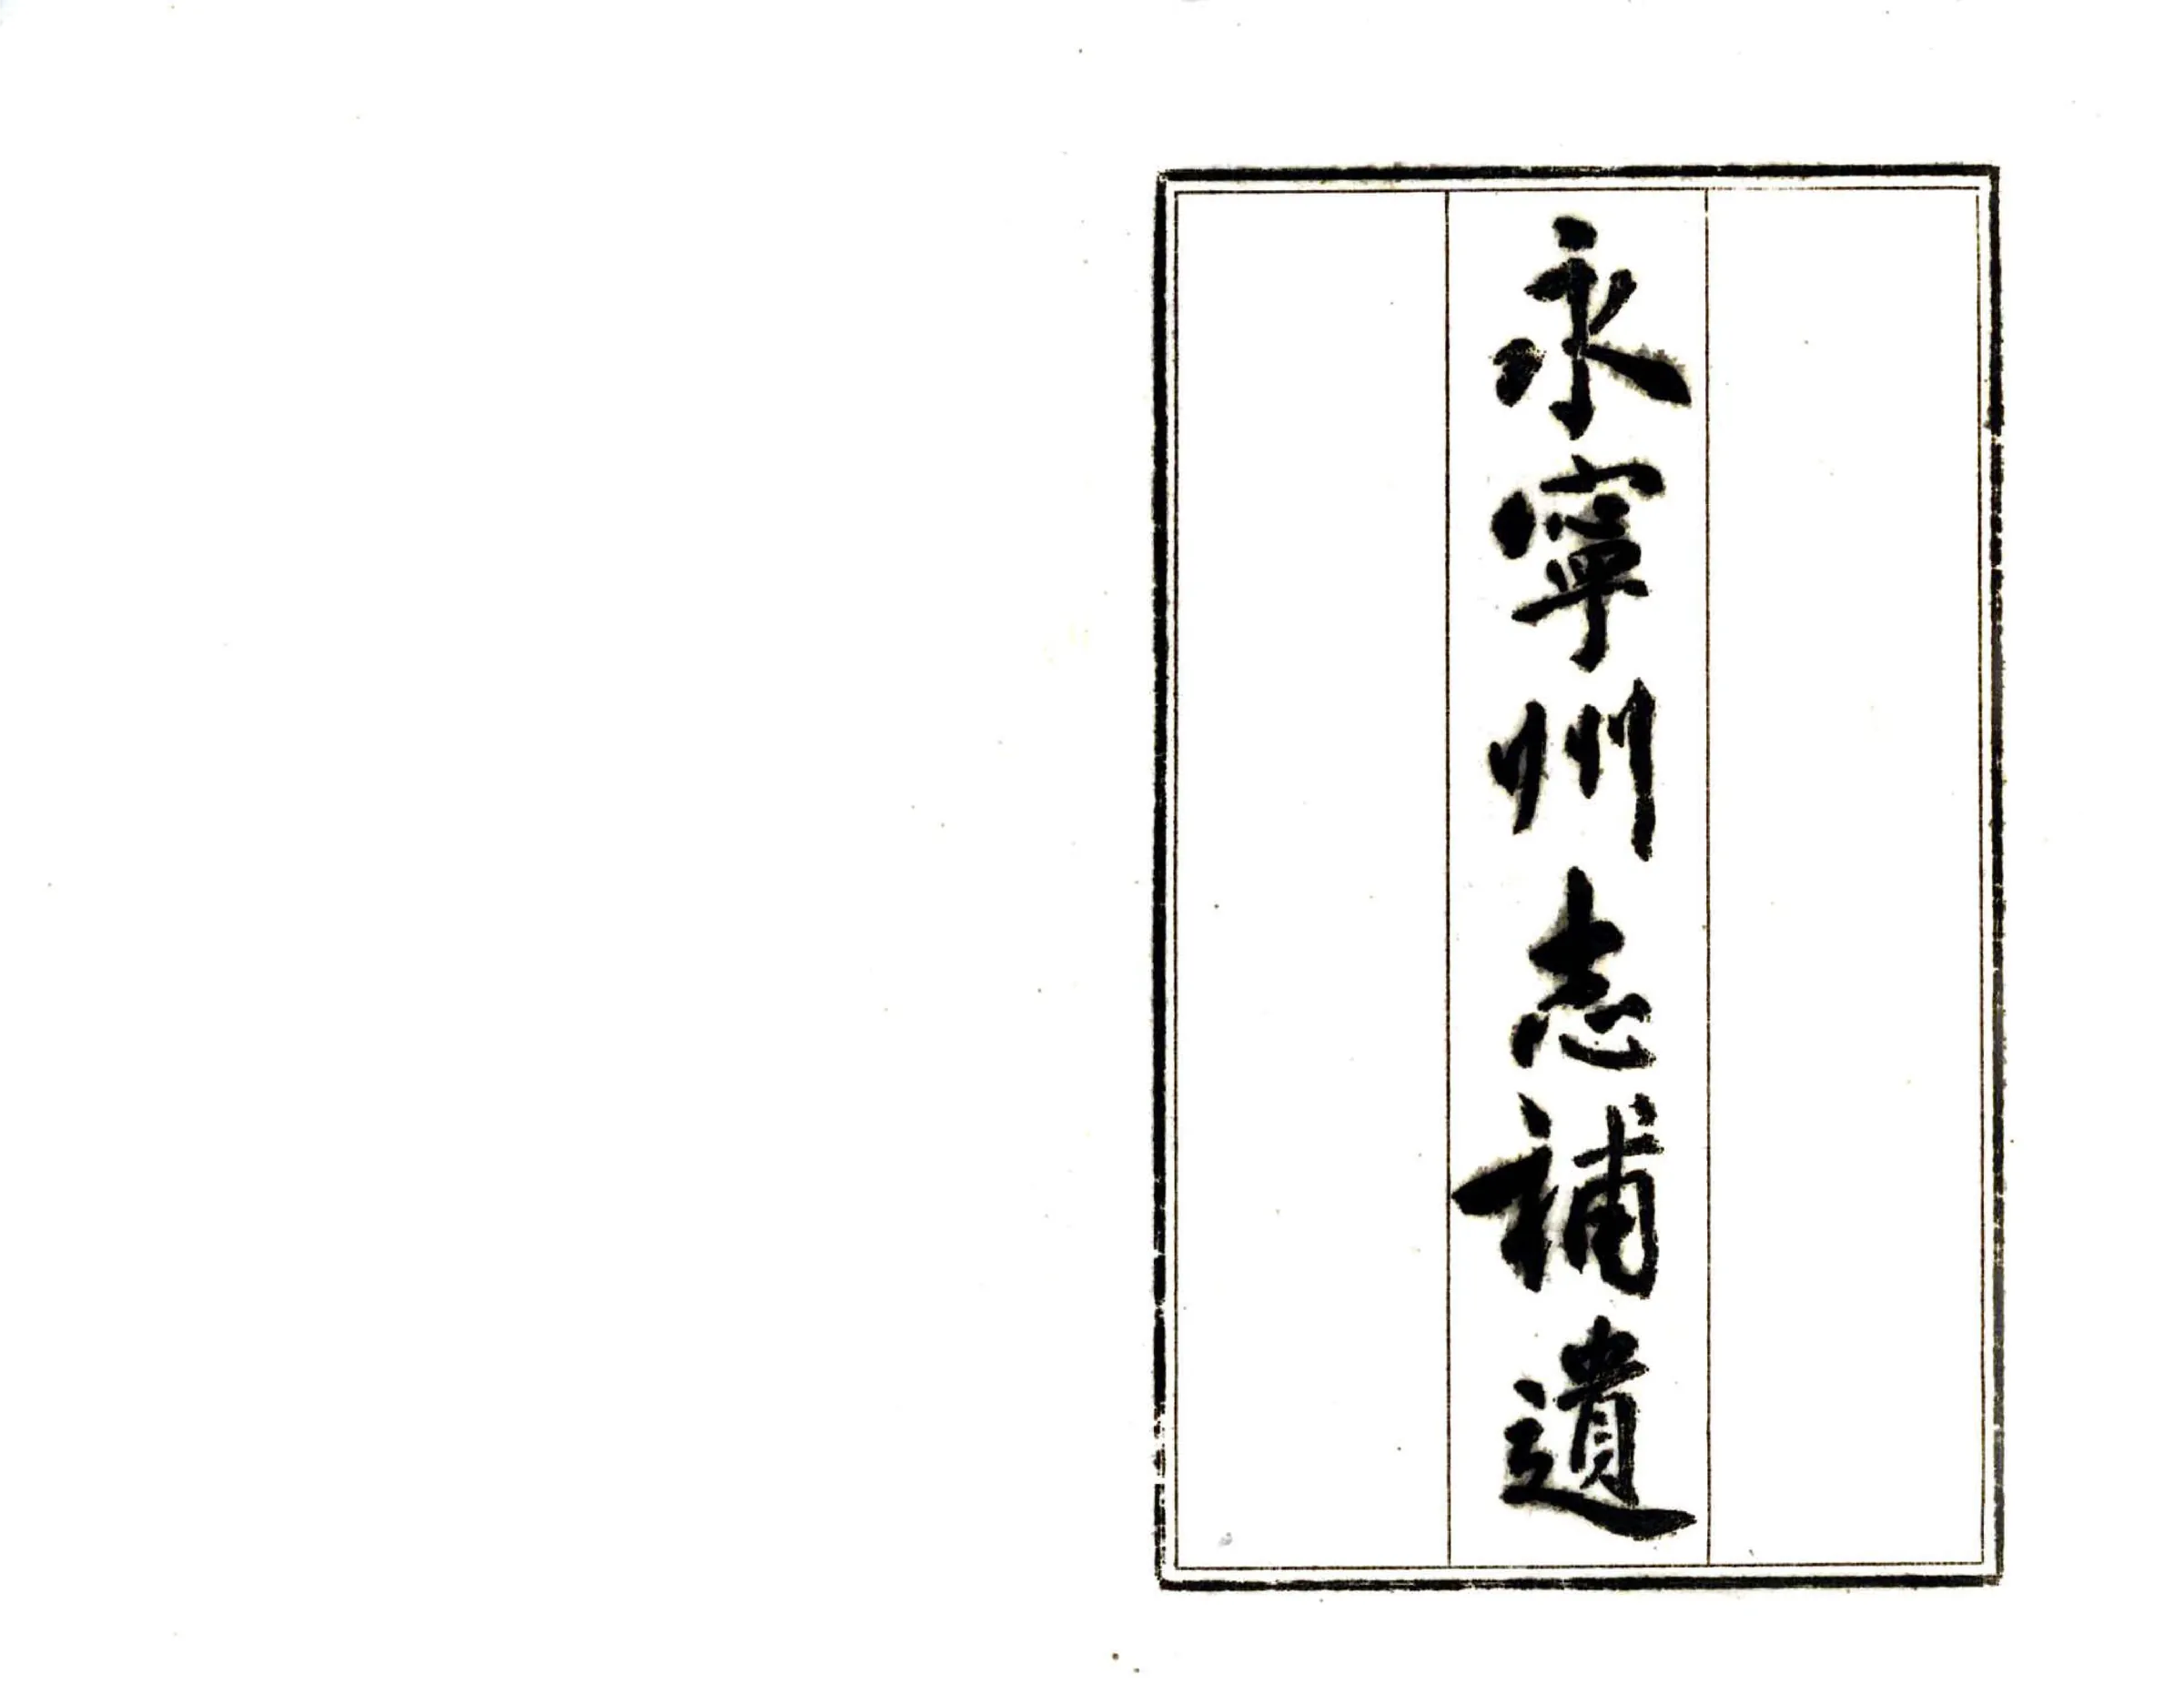 永寧州志補遺